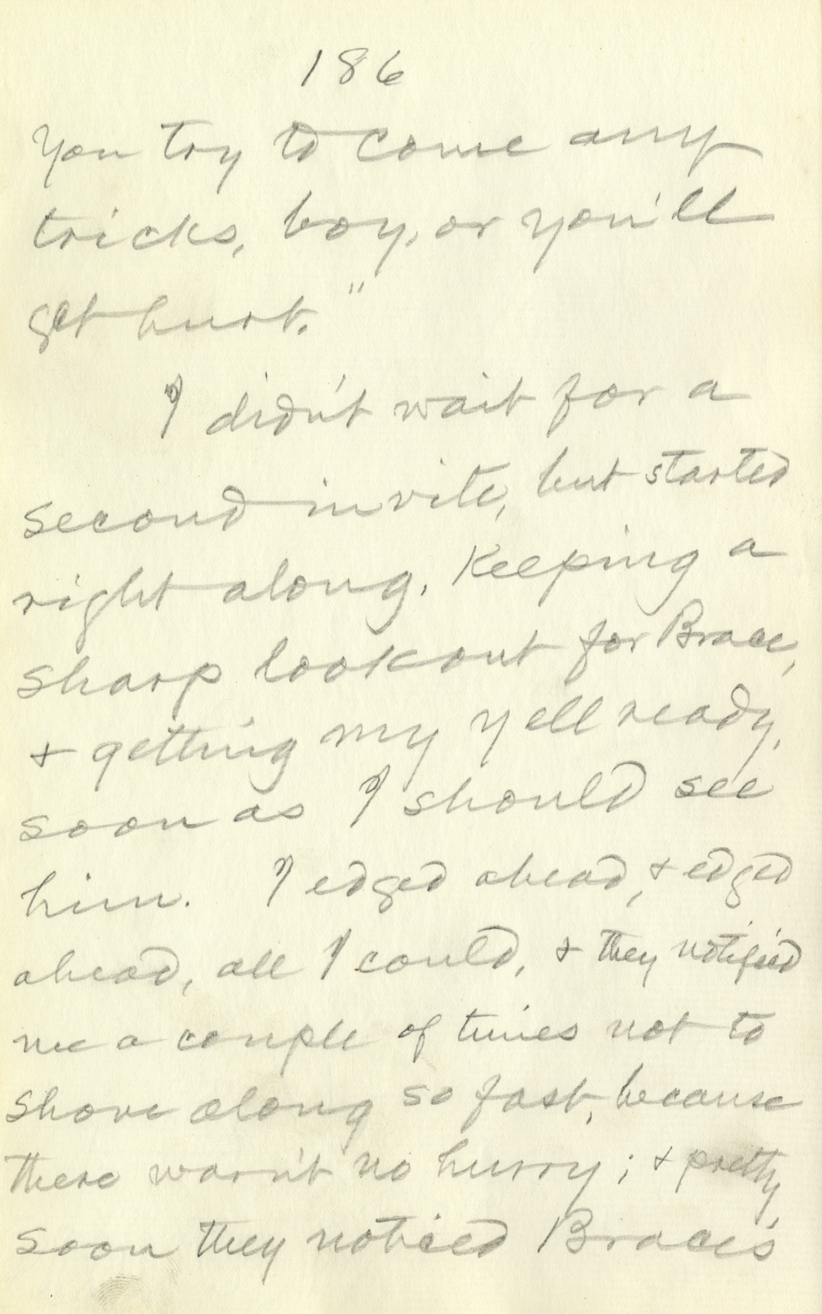 186
You try to come any
tricks, boy, or you'll
get hurt."
I didn't wait for a
second invite, but started
right along. Keeping a
sharp lookout for Brace,
& getting my yell ready,
soon as I should see
him. I edged ahead, & edged
ahead, all I could, & they notified
me a couple of times not to
shove along so fast, because
there warn't no hurry; & pretty
soon they noticed Brace's